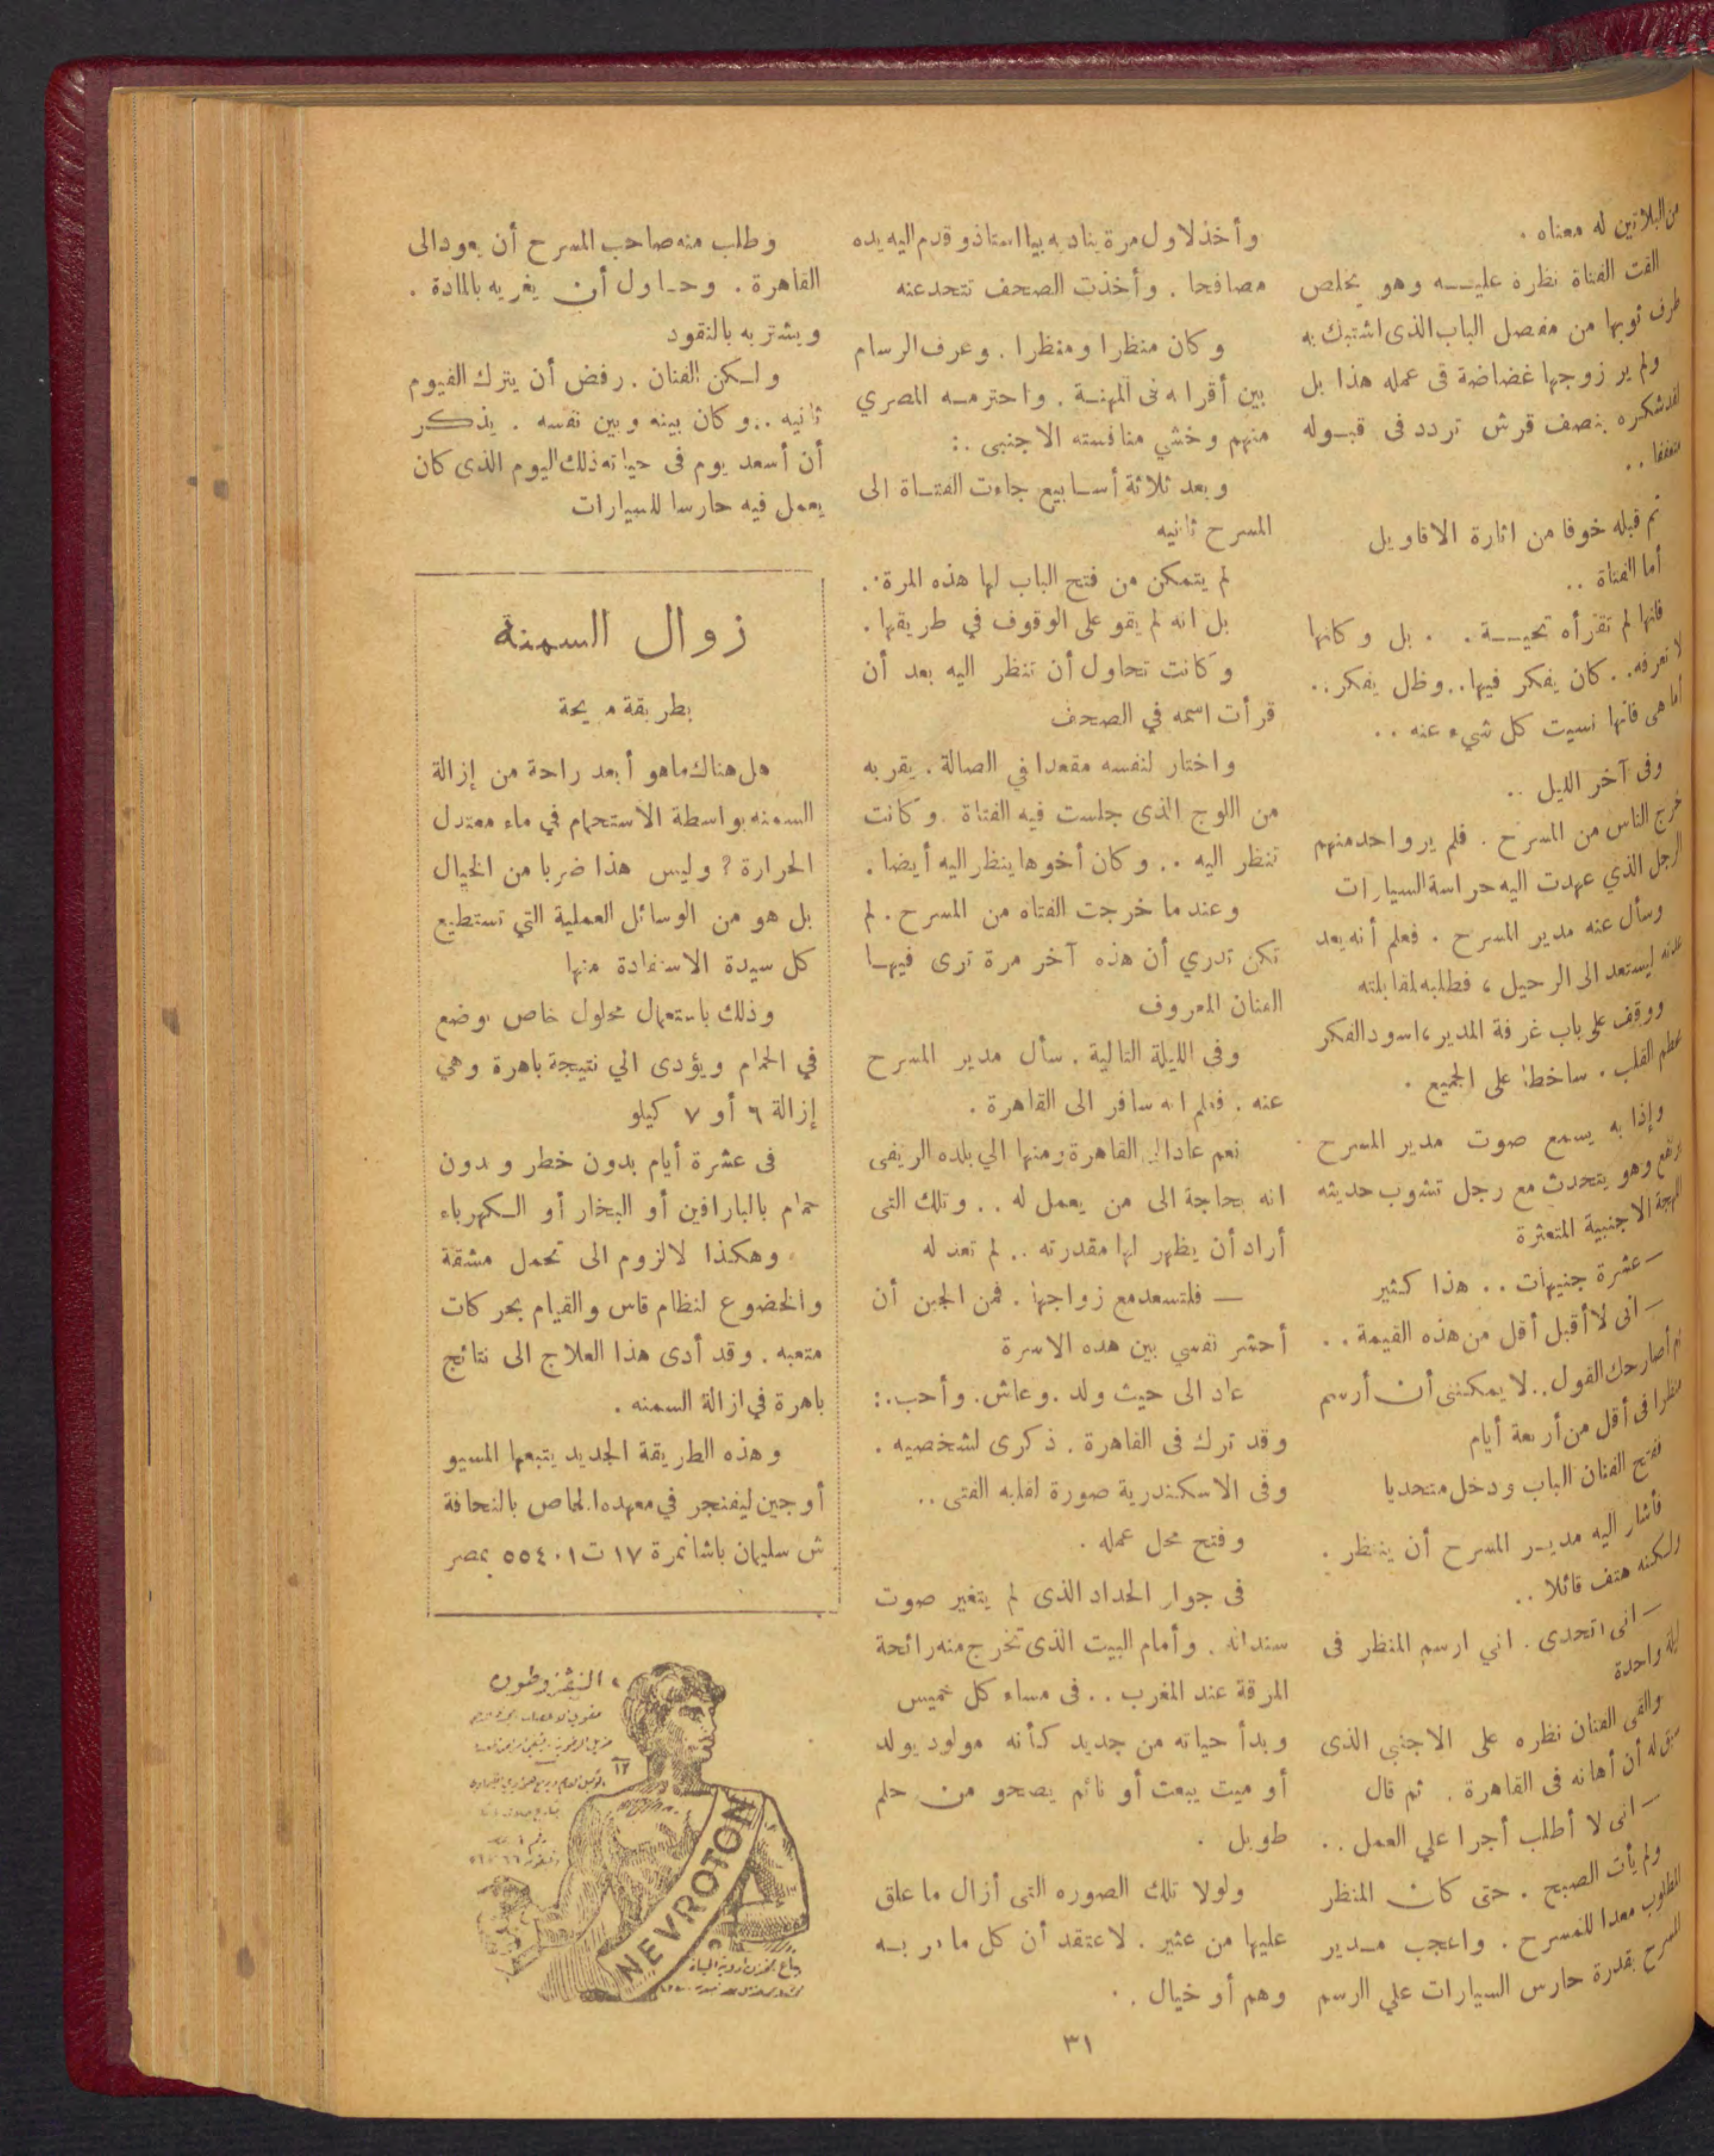 من البلاتين له معناه .
القت الفتاة نظرة عليـــه وهو يخلص
طرف ثوبها من مفصل الباب الذى اشتبك به
ولم ير زوجها غضاضة فى عمله هذا بل
لقد شكره بنصف قرش تردد فى قبـوله
متعففا ..
ثم قبله خوفا من اثارة الاقاويل
أما الفتاة ..
فانها لم تقرأه تحيـــة . . بل وكانها
لا تعرفه . . كان يفكر فيها .. وظل يفكر ..
أما هى فانها نسيت كل شىء عنه ..
وفى آخر الليل ..
خرج الناس من المسرح . فلم ير واحد منهم
الرجل الذي عهدت اليه حراسة السيارات
وسأل عنه مدير المسرح . فعلم أنه يعد
عدته ليستعد الى الرحيل ، فطلبه لمقابلته
ووقف على باب غرفة المدير ، اسود الفكر
محطم القلب . ساخطا على الجميع .
وإذا به يسمع صوت مدير المسرح
يرتفع وهو يتحدث مع رجل تشوب حديثه
اللهجة الاجنبية المتعثرة
— عشرة جنيهات .. هذا كثير
— انى لا أقبل أقل من هذه القيمة . .
ثم أصارحك القول .. لا يمكننى أن أرسم
منظرا فى أقل من أربعة أيام
ففتح الفنان الباب ودخل متحديا
فأشار اليه مديـر المسرح أن ينتظر .
ولكنه هتف قائلا ..
— انى اتحدى . اني ارسم المنظر فى
ليلة واحدة
والقى الفنان نظره على الاجنبي الذى
سبق له أن أهانه فى القاهرة . ثم قال
— انى لا أطلب أجرا علي العمل . .
ولم يأت الصبح . حتى كان المنظر
المطلوب معدا للمسرح . واعجب مـدير
المسرح بقدرة حارس السيارات علي الرسم
وأخذ لاول مرة يناديه بيا استاذ و قدم اليه يده
مصافحا . وأخذت الصحف تتحد عنه
وكان منظرا ومنظرا . وعرف الرسام
بين أقرانه فى المهنـة . واحترمـه المصري
منهم وخشي منافسته الاجنبى .:
وبعد ثلاثة أسـابيع جاءت الفتـاة الى
المسرح ثانيه
لم يتمكن من فتح الباب لها هذه المرة .
بل انه لم يقو على الوقوف في طريقها .
وكانت تحاول أن تنظر اليه بعد أن
قرأت اسمه في الصحف
واختار لنفسه مقعدا في الصالة . يقربه
من اللوج الذى جلست فيه الفتاة . وكانت
تنظر اليه .. وكان أخوها ينظر اليه أيضا .
وعند ما خرجت الفتاه من المسرح . لم
تكن تدري أن هذه آخر مرة ترى فيهـا
الفنان المعروف
وفى الليلة التالية . سأل مدير المسرح
عنه . فعلم انه سافر الى القاهرة .
نعم عاد الى القاهرة ومنها الي بلده الريفى
انه بحاجة الى من يعمل له .. وتلك التى
أراد أن يظهر لها مقدرته .. لم تعد له
— فلتسعد مع زواجها . فمن الجبن أن
أحشر نفسي بين هده الاسرة
عاد الى حيث ولد . وعاش . وأحب .:
وقد ترك فى القاهرة . ذكرى لشخصيه .
وفى الاسكندرية صورة لقلبه الفتى ..
وفتح محل عمله .
فى جوار الحداد الذى لم يتغير صوت
سندانه . وأمام البيت الذى تخرج منه رائحة
المرقة عند المغرب .. فى مساء كل خميس
وبدأ حياته من جديد كأنه مولود يولد
أو ميت يبعت أو نائم يصحو من حلم
طويل .
ولولا تلك الصوره التى أزال ما علق
عليها من عثير . لاعتقد أن كل ما مر بـه
وهم أو خيال . .
وطلب منه صاحب المسرح أن يعود الى
القاهرة . وحـاول أن يغريه بالمادة .
ويشتريه بالنقود
ولـكن الفنان . رفض أن يترك الفيوم
ثانيه .. وكان بينه وبين نفسه . يذكر
أن أسعد يوم فى حياته ذلك اليوم الذى كان
يعمل فيه حارسا للسيارات
زوال السمنة
بطريقة مريحة
هل هناك ماهو أبعد راحة من إزالة
السمنه بواسطة الاستحمام في ماء معتدل
الحرارة ؟ وليس هذا ضربا من الخيال
بل هو من الوسائل العملية التي تستطيع
كل سيدة الاستفادة منها
وذلك باستعمال محلول خاص يوضع
في الحمام ويؤدى الي نتيجة باهرة وهي
إزالة ٦ أو ٧ كيلو
فى عشرة أيام بدون خطر وبدون
حمام بالبارافين أو البخار أو الـكهرباء
وهكذا لا لزوم الى تحمل مشقة
والخضوع لنظام قاس والقيام بحركات
متعبه . وقد أدى هذا العلاج الى نتائج
باهرة في ازالة السمنه .
وهذه الطريقة الجديد يتبعها المسيو
أوجين ليفنجر في معهده الخاص بالنحافة
ش سليمان باشا نمرة ١٧ ت ٥٥٤٠١ بمصر
النيفروطون
NEVROTON
٣١